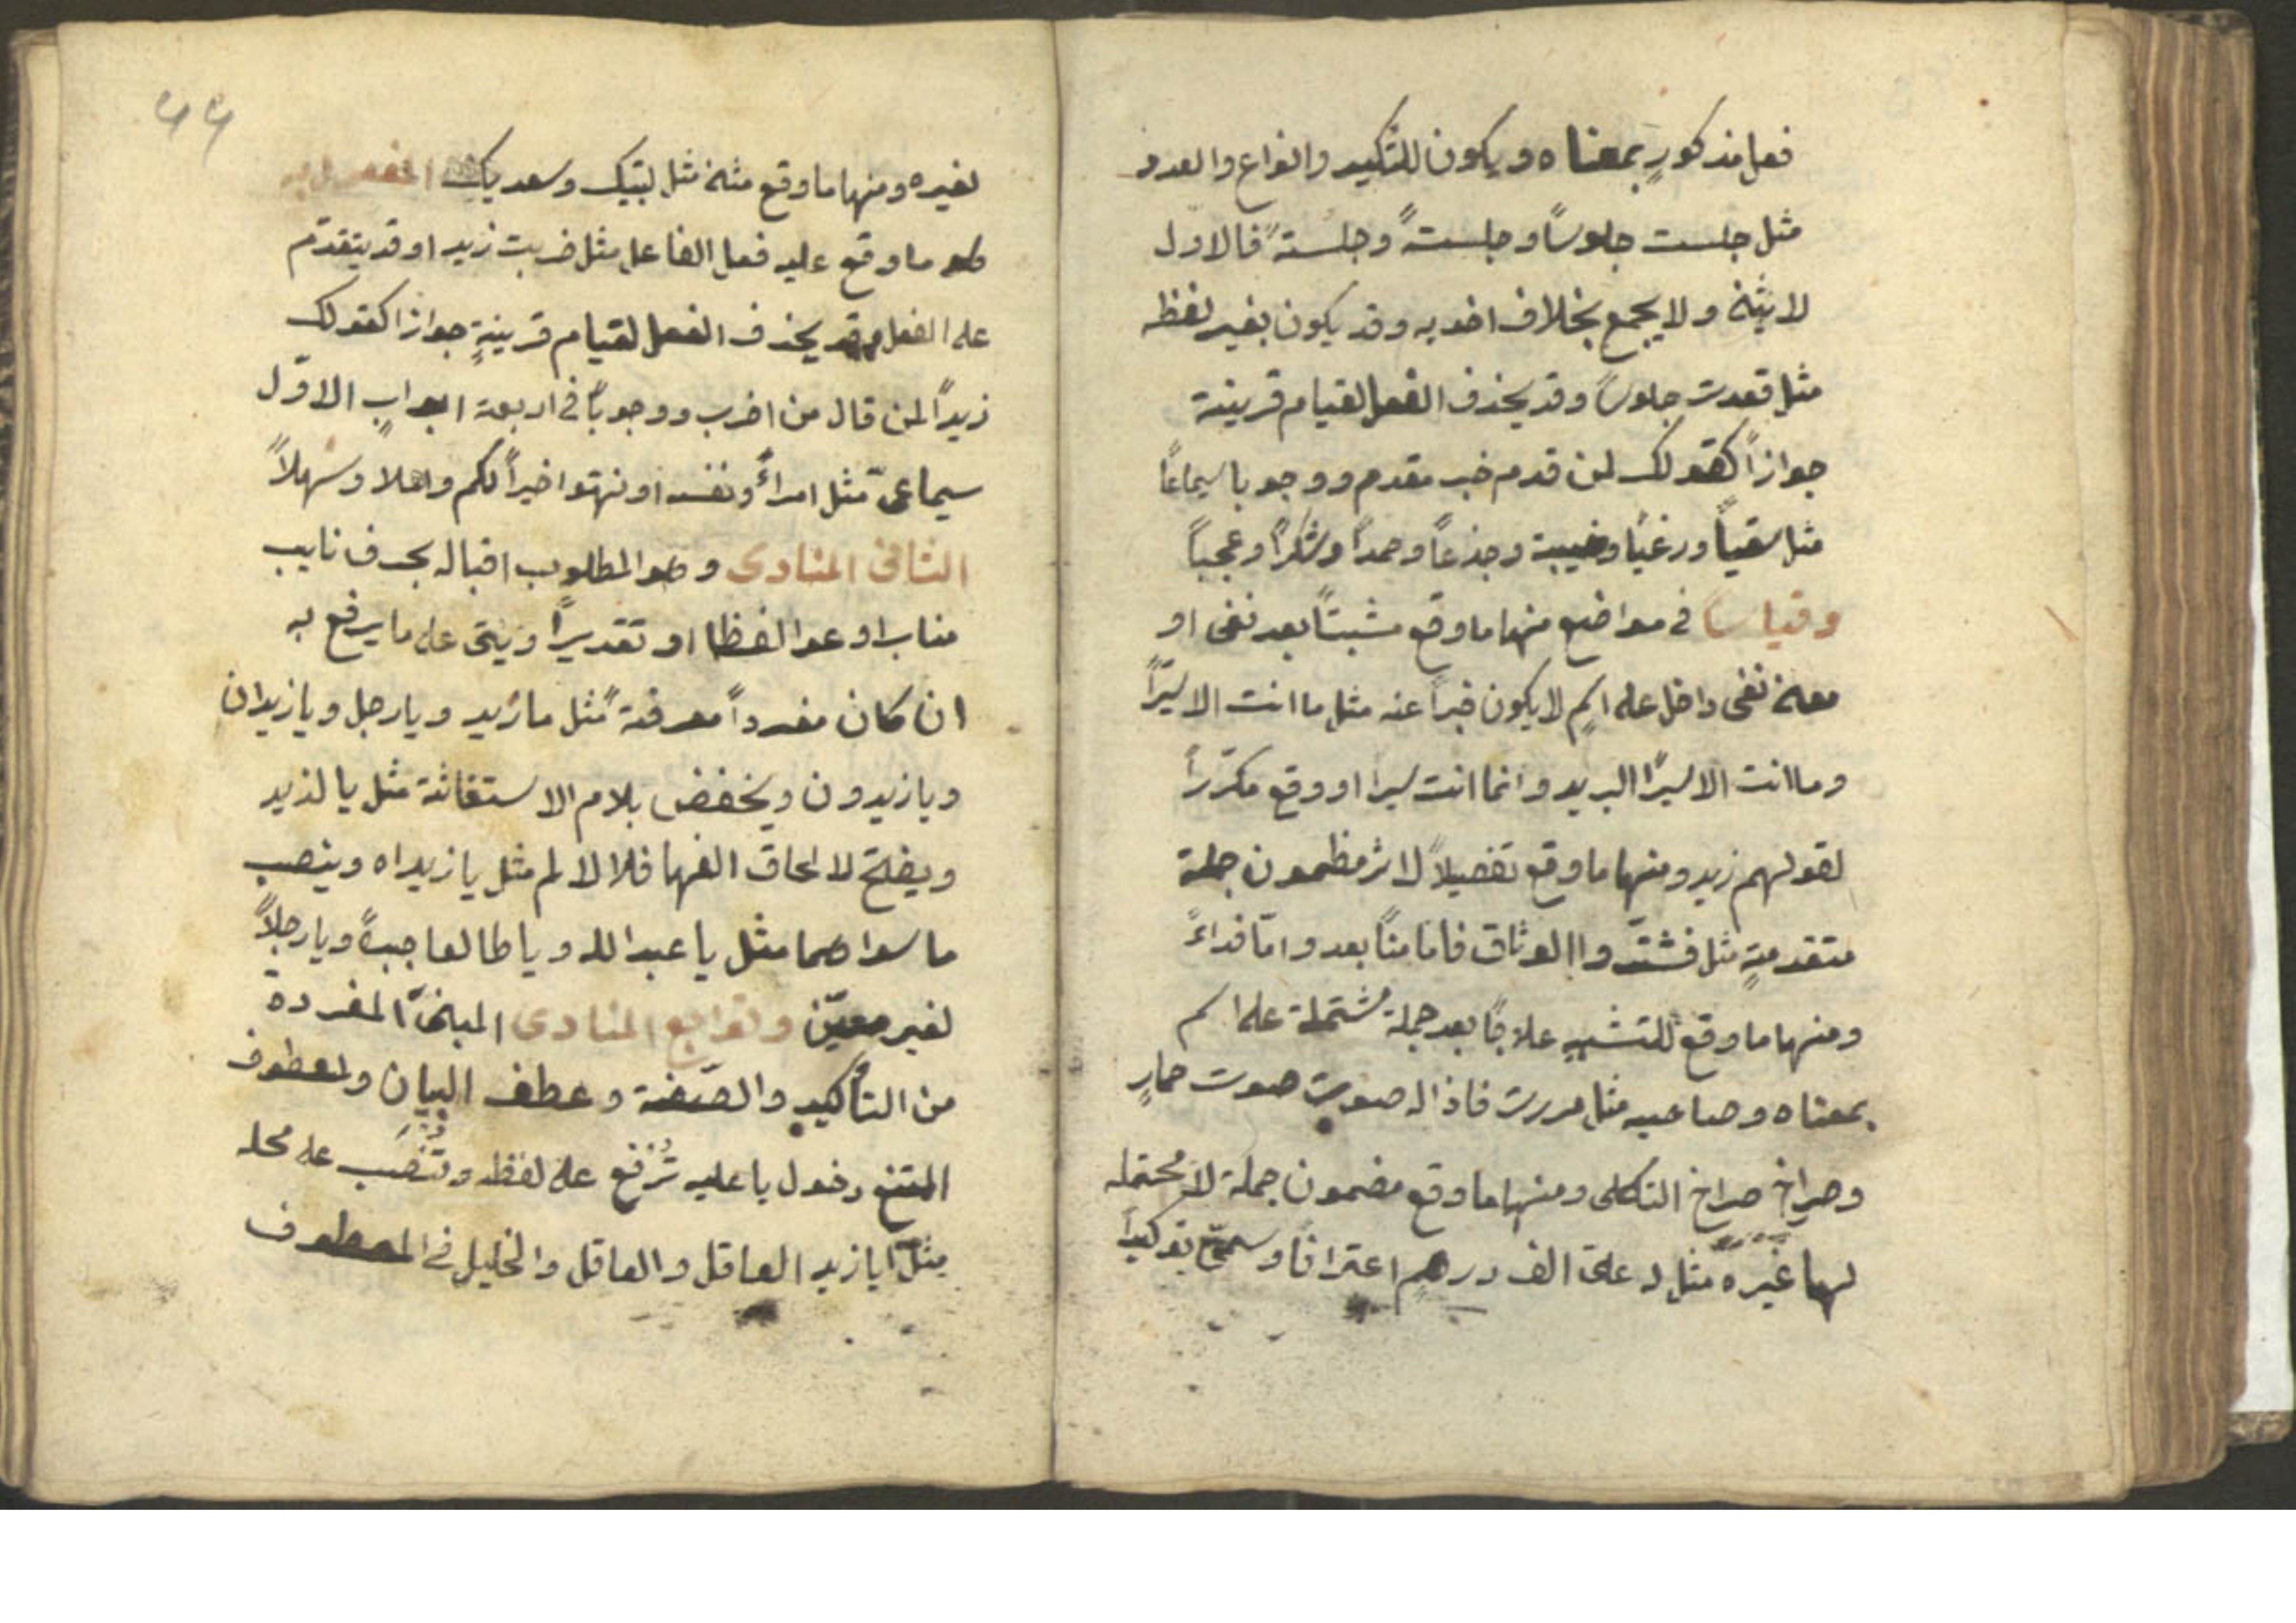 فعل مذكورٍ بمعناه ويكون للتكيد والنواع والعدد
مثل جلست جلوسًا وجلستهً وجلسته فالاول
لا يثنى ولا يجمع بخلاف اخويه وقد يكون بغير لفظه
مثل قعدت جلوسًا وقد يحذف الفعل لقيام قرينة
جوازًا كقولك لمن قدم خير مقدم ووجوبا سماعًا
مثل سقيًا ورعيًا وخيبة وجذعًا وحمدًا وشكرًا وعجبًا
وقياسًا في مواضع منها ما وقع مثبتًا بعد نفى او
معنى نفى داخل على اسمٍ لا يكون خبرًا عنه مثل ما انت الا سيرًا
وما انت الا سيرًا البريد وانما انت سيرا او وقع مكرّرًا
لقولهم زيد ومنها ما وقع تفصيلاً لاثر مظمون جملة
متقدمةٍ مثل فشدّوا الوثاق فاما منًا بعد وامّا فداءً
ومنها ما وقع للتشبيه علاجًا بعد جملة مشتملة على اسم
بمعناه وصاحبه مثل مررت فاذا له صوت صوت حمارٍ
وصراخ صراخ الثكلى ومنها ما وقع مضمون جملة لا محتمله
لها غيره مثل له علىّ الف درهمٍ اعترافًا وسمىّ توكيدًا
٤٤
لغيره ومنها ما وقع مثنى مثل لبّيك وسعديك المفعول به
هو ما وقع عليه فعل الفاعل مثل ضربت زيدا وقد يتقدّم
على الفعل وقد يحذف الفعل لقيام قرينةٍ جوازا كقولك
زيدًا لمن قال من اضرب ووجوبًا فى اربعة ابوابٍ الاوّل
سيماعىّ مثل امراءً ونفسه او نهتوا خيرًا لكم واهلا وسهلاً
الثانى المنادى وهو المطلوب اقباله بحرف نايب
مناب ادعوا لفظا او تقديرًا ويبنى على ما يرفع به
ان كان مفردًا معرفةً مثل يا زيد ويا رجل ويا زيدان
ويا زيدون ويخفض بلام الاستغاثة مثل يا لزيد
ويفتح لالحاق الفها فلا لام مثل يا زيداه وينصب
ما سواهما مثل يا عبد الله ويا طالعا جبلاً ويا رجلاً
لغير معيّن وتوابع المنادى المبنىّ المفردة
من التأكيد والصّفة وعطف البيانِ والمعطوف
الممتنع دخول يا عليه تُرفع على لفظه وتُنصَب على محله
مثل يا زيد العاقل والعاقل والخليل في المعطوف